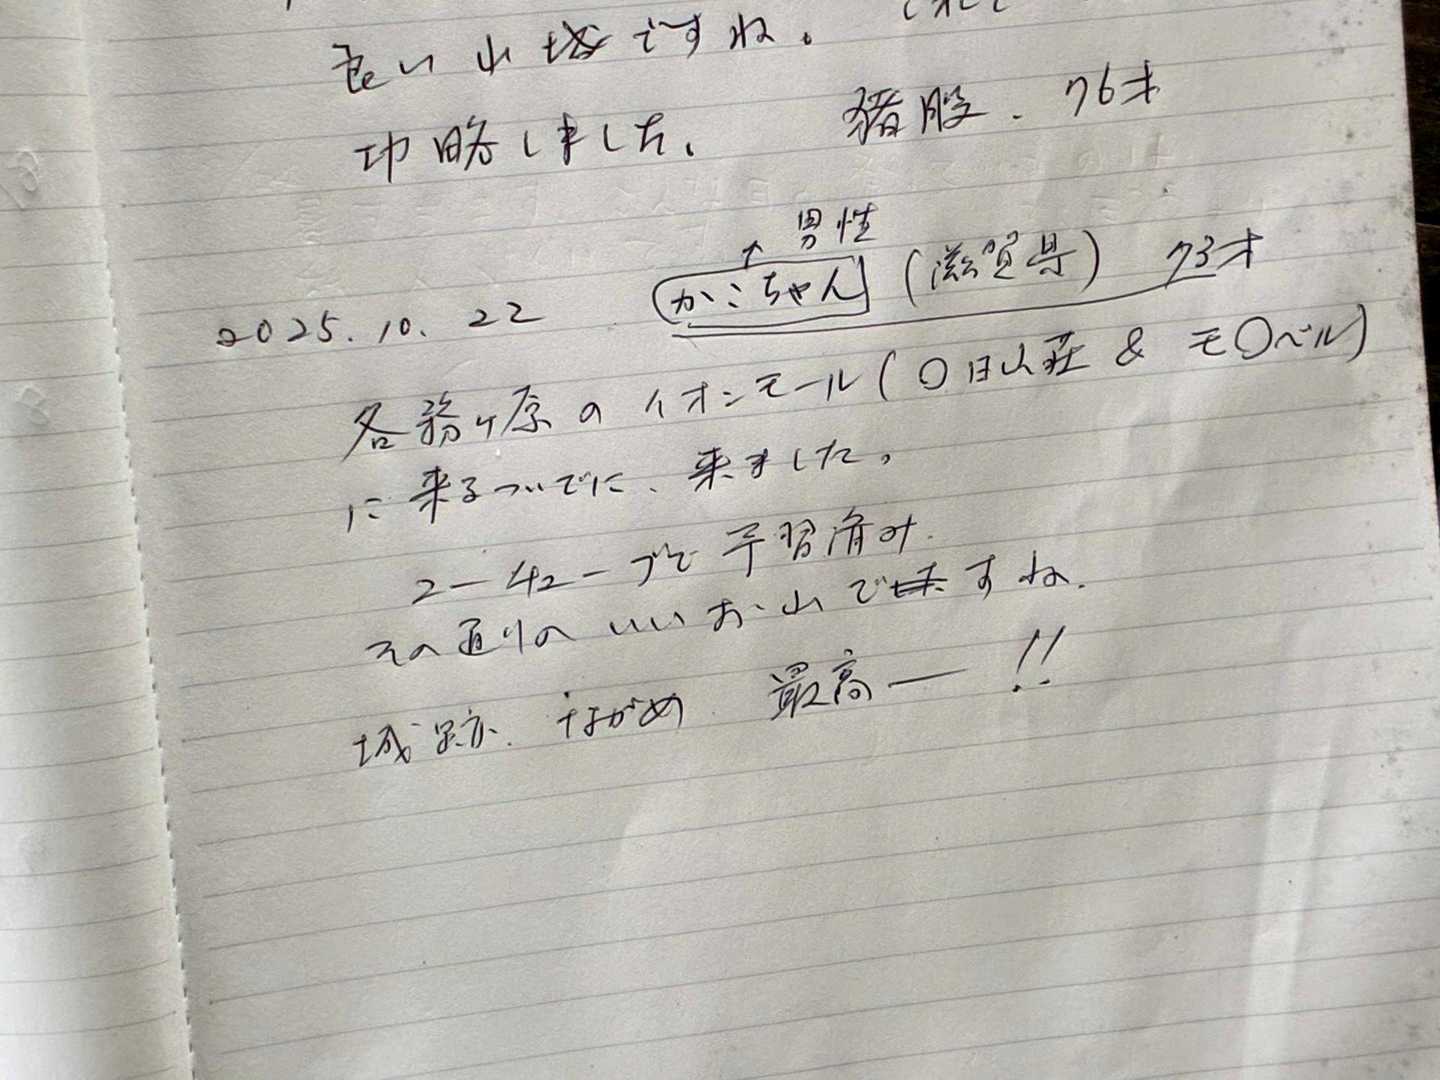 良い山城ですね。
功略しました。 猪股. 76才
↑男性
2025.10.22 かこちゃん (滋賀県) 73才
各務ヶ原のイオンモール(〇日山荘 & モ〇ベル)
に来るついでに、来ました。
予習済み.
その通りのいいお山ですね.
城跡. ながめ 最高ー!!